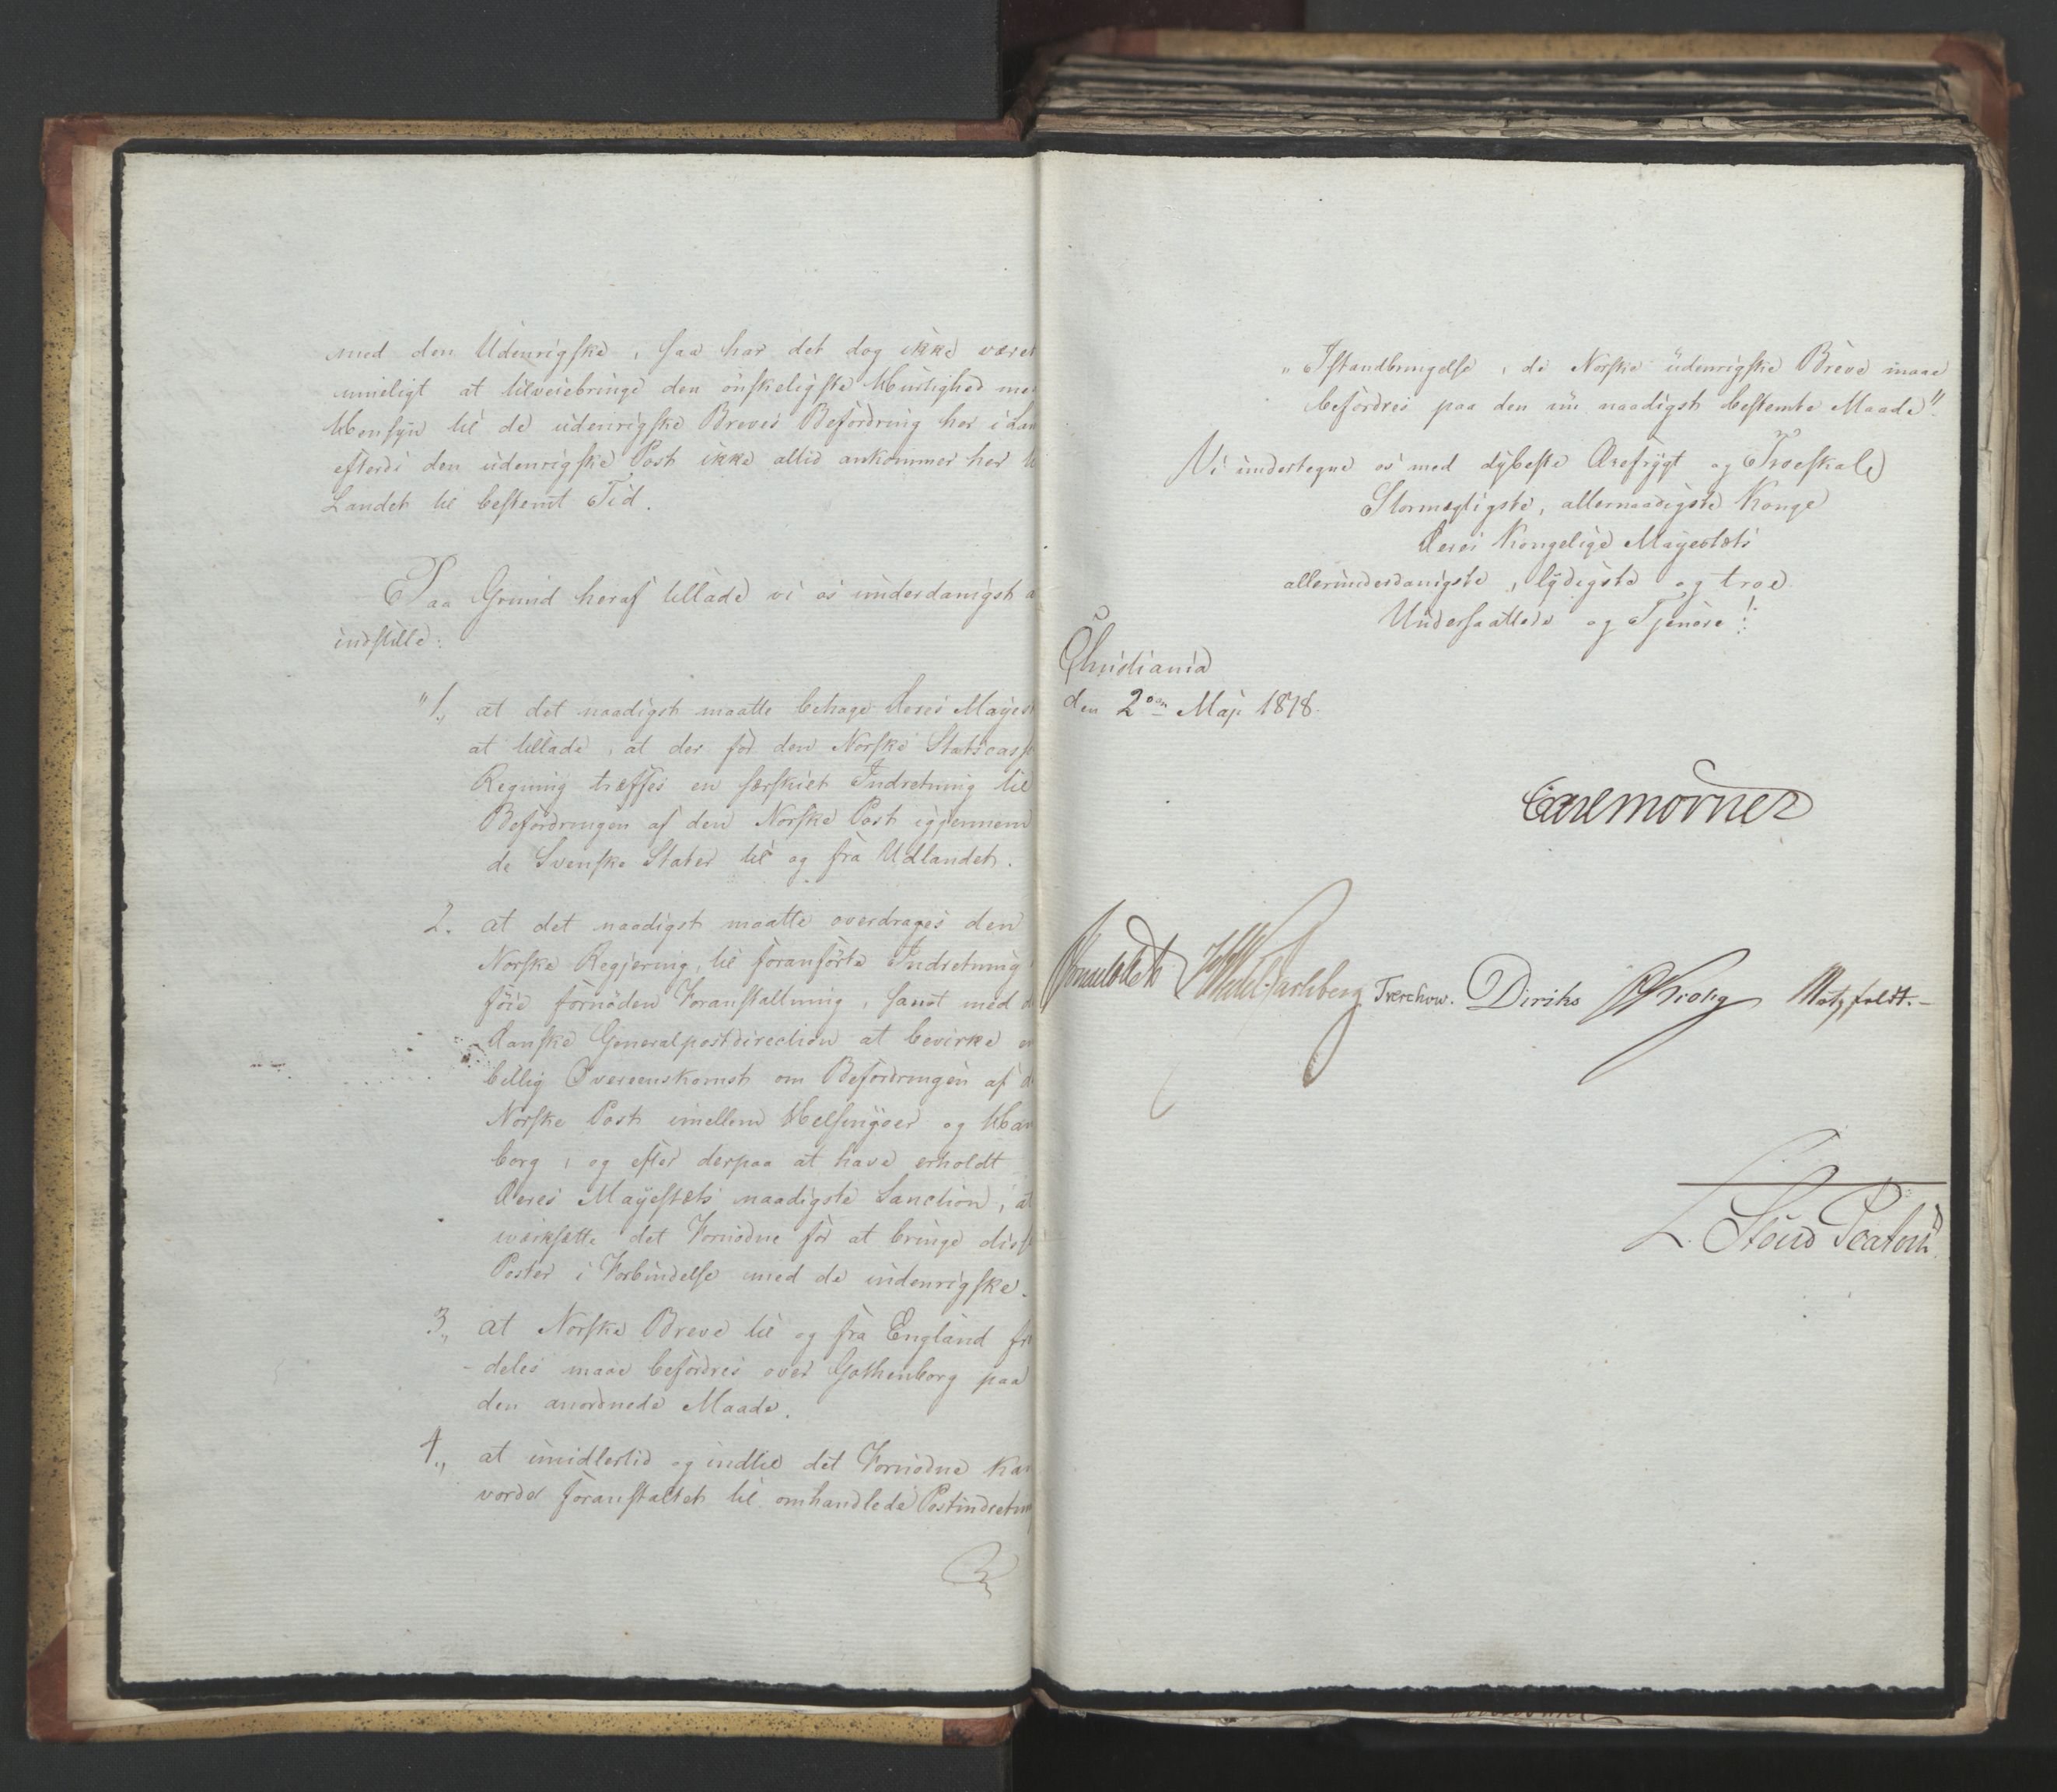 med den Udenrigske, saa har det dog ikke været
mueligt at tilveiebringe den önskeligste Hurtighed med
Hensyn til de udenrigske Breves Befordring her i Lan
efterdi den udenrigske Post ikke altid ankommer her til
Landet til bestemt Tid.
Paa Grund heraf tillade vi os underdanigst at
indstille:
"1., at det naadigst maatte behage Deres Mayest
at tillade, at der for den Norske Statscasses
Regning træffes en særskilt Indretning til
Befordringen af den Norske Post igjennem
de Svenske Stater til og fra Udlandet.
2. at det naadigst maatte overdrages den
Norske Regjering, til foranförte Indretning
föie fornöden Foranstaltning, samt med d
danske Generalpostdirection at bevirke en
billig Overeenskomst om Befordringen af d
Norske Post imellem Helsingöer og Ham
borg, og efter derpaa at have erholdt
Deres Mayestets naadigste Sanction, at
iværksætte det Fornödne for at bringe disse
Poster i Forbindelse med de udenrigske.
3., at Norske Breve til og fra England frem
-deles maae befordres over Gothenborg paa
den anordnede Maade.
4., at imidlertid og indtil det Fornödne kan
vorde foranstaltet til omhandlede Postindretnings
"Istandbringelse, de Norske udenrigske Breve maae
befordres paa den nu naadigst bestemte Maade".
Vi undertegne os med dybeste Ærefrygt og Troeskab
Stormægtigste, allernaadigste Konge
Deres Kongelige Mayestets
allerunderdanigste, lydigste og troe
Undersaatter og Tjenere!
Christiania
den 2den Maji 1818.
Carl Mörner
Sommerfeldt HWedel-Jarlsberg Treschow. Diriks Krohg Motzfeldt.-
L. Stoud Platou